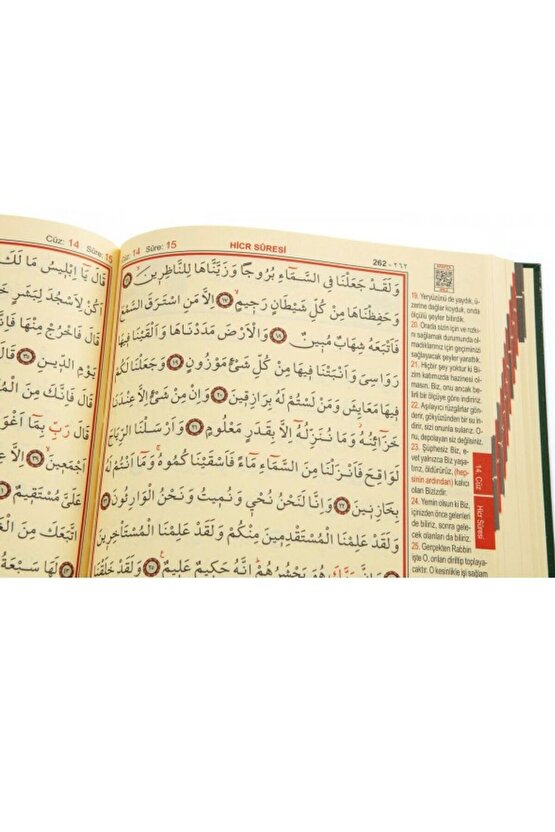 Cüz: 14 Sûre: 15
HİCR SÛRESİ
262 - ٢٦٢
وَلَقَدْ جَعَلْنَا فِي السَّمَاءِ بُرُوجًا وَزَيَّنَّاهَا لِلنَّاظِرِينَ ﴿١٦﴾
وَحَفِظْنَاهَا مِنْ كُلِّ شَيْطَانٍ رَجِيمٍ ﴿١٧﴾ اِلَّا مَنِ اسْتَرَقَ السَّمْعَ
فَاَتْبَعَهُ شِهَابٌ مُبِينٌ ﴿١٨﴾ وَالْاَرْضَ مَدَدْنَاهَا وَاَلْقَيْنَا فِيهَا
رَوَاسِيَ وَاَنْبَتْنَا فِيهَا مِنْ كُلِّ شَيْءٍ مَوْزُونٍ ﴿١٩﴾ وَجَعَلْنَا لَكُمْ
فِيهَا مَعَايِشَ وَمَنْ لَسْتُمْ لَهُ بِرَازِقِينَ ﴿٢٠﴾ وَاِنْ مِنْ شَيْءٍ اِلَّا عِنْدَنَا
خَزَائِنُهُ وَمَا نُنَزِّلُهُ اِلَّا بِقَدَرٍ مَعْلُومٍ ﴿٢١﴾ وَاَرْسَلْنَا الرِّيَاحَ
لَوَاقِحَ فَاَنْزَلْنَا مِنَ السَّمَاءِ مَاءً فَاَسْقَيْنَاكُمُوهُ وَمَا اَنْتُمْ لَهُ
بِخَازِنِينَ ﴿٢٢﴾ وَاِنَّا لَنَحْنُ نُحْيِي وَنُمِيتُ وَنَحْنُ الْوَارِثُونَ ﴿٢٣﴾
وَلَقَدْ عَلِمْنَا الْمُسْتَقْدِمِينَ مِنْكُمْ وَلَقَدْ عَلِمْنَا الْمُسْتَأْخِرِينَ
وَاِنَّ رَبَّكَ هُوَ يَحْشُرُهُمْ اِنَّهُ حَكِيمٌ عَلِيمٌ ﴿٢٥﴾ وَلَقَدْ خَلَقْنَا
19. Yeryüzünü de yaydık, ü-
zerine dağlar koyduk, onda
ölçülü şeyler bitirdik.
20. Orada sizin için ve rızkı-
nı sağlamak durumunda ol-
madıklarınız için geçiminizi
sağlayacak şeyler yarattık.
21. Hiçbir şey yoktur ki Bi-
zim katımızda hazinesi ol-
masın. Biz, onu ancak be-
lirli bir ölçüye göre indiririz.
22. Aşılayıcı rüzgârlar gön-
derir, gökyüzünden bir su in-
dirir, sizi onunla sularız. O-
nu, depolayan siz değilsiniz.
23. Şüphesiz Biz, e-
vet yalnızca Biz yaşa-
tırız, öldürürüz, (hep-
sinin ardından) kalıcı
olan Bizizdir.
24. Yemin olsun ki Biz,
içinizden önce gelenleri
de biliriz, sonra gele-
cek olanları da biliriz.
25. Gerçekten Rabbin
işte O, onları diriltip toplaya-
caktır. O kesinlikle işi sağlam
14. Cüz
Hicr Sûresi
Cüz: 14 Sûre: 15
قَالَ يَا اِبْلِيسُ مَا لَكَ
اَكُنْ لِاَسْجُدَ لِبَشَرٍ
قَالَ فَاخْرُجْ مِنْهَا
يَوْمِ الدِّينِ ﴿٣٥﴾ قَالَ
قَالَ فَاِنَّكَ مِنَ
قَالَ رَبِّ بِمَا اَغْوَيْتَنِي
اَجْمَعِينَ ﴿٣٩﴾ اِلَّا
عَلَيَّ مُسْتَقِيمٌ ﴿٤١﴾
اتَّبَعَكَ مِنَ
لَهَا سَبْعَةُ